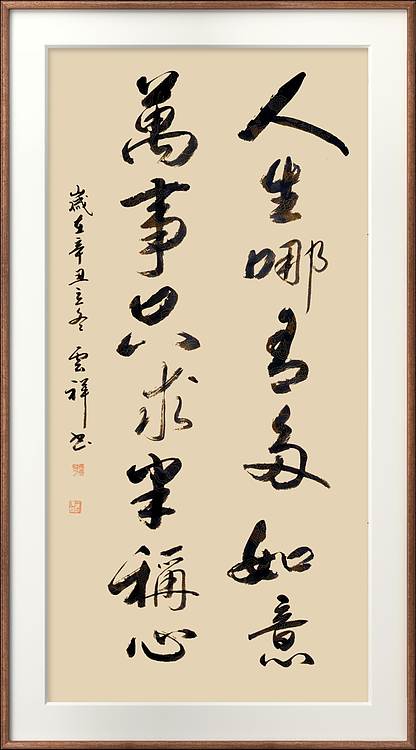 人生哪有多如意
萬事只求半稱心
歲在辛丑立冬 雲祥書